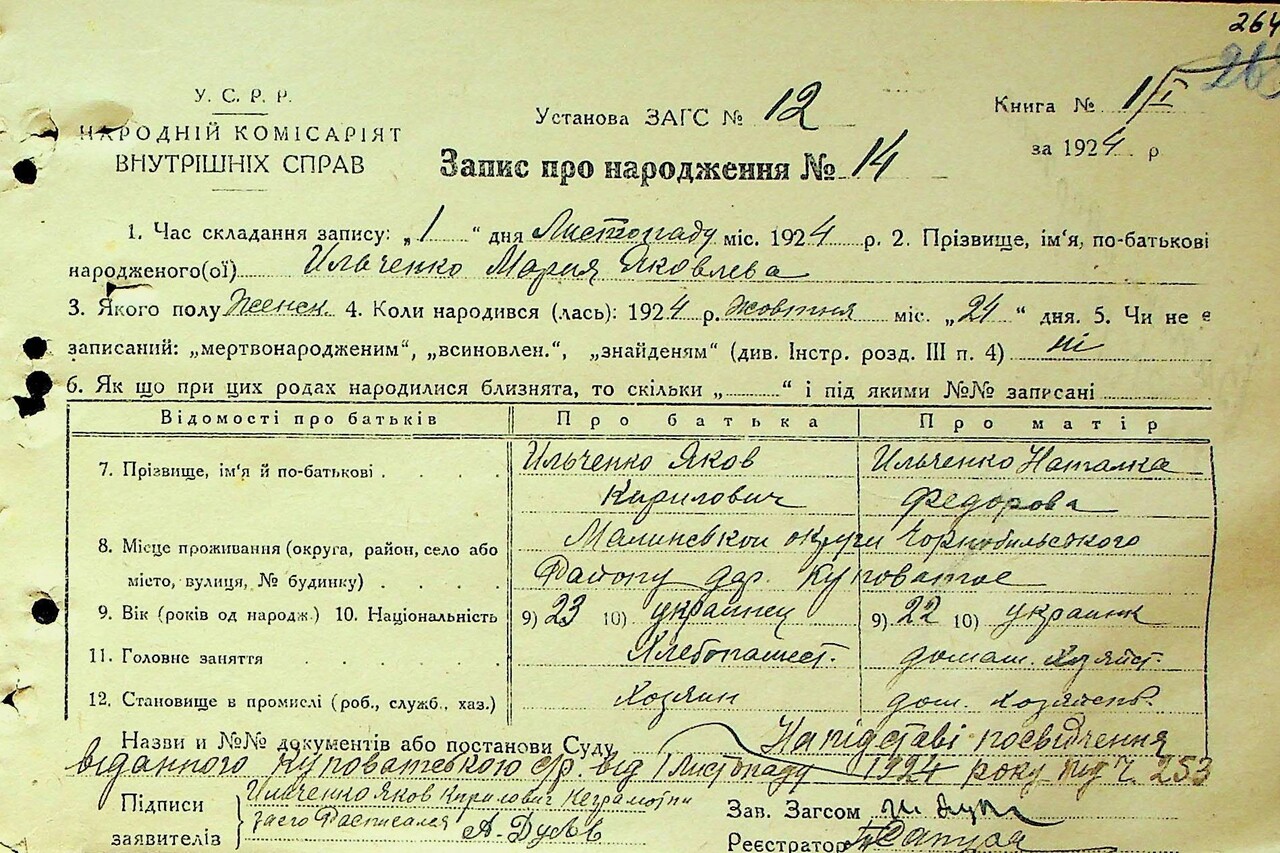 264
У. С. Р. Р.
НАРОДНІЙ КОМІСАРІЯТ
ВНУТРІШНІХ СПРАВ
Установа ЗАГС № 12
Книга № 1/I
за 1924 р
Запис про народження № 14
1. Час складання запису: „1“ дня Листопаду міс. 1924 р. 2. Прізвище, ім'я, по-батькові
народженого(ої) Ильченко Мария Яковлева
3. Якого полу Женск. 4. Коли народився (лась): 1924 р. жовтня міс. „24“ дня. 5. Чи не є
записаний: „мертвонародженим“, „всиновлен.“, „знайденям“ (див. Інстр. розд. III п. 4) ні
6. Як що при цих родах народилися близнята, то скільки „ “ і під якими №№ записані
Відомості про батьків Про батька Про матір
7. Прізвище, ім'я й по-батькові Ильченко Яков Ильченко Наталка
Кирилович Федорова
8. Місце проживання (округа, район, село або Малинскои округи Чорнобильського
місто, вулиця, № будинку) Району дер. Куповатое
9. Вік (років од народж.) 10. Національність 9) 23 10) украинец 9) 22 10) украинк
11. Головне заняття Хлебопашест. домаш. хозяйст.
12. Становище в промислі (роб., служб., хаз.) Хозяин дом. хозяйств.
Назви и №№ документів або постанови Суду На підставі посвідчення
віданного Куповатською с/р. від 1 Листопаду 1924 року під ч. 253
Підписи
заявителів
Ильченко Яков Кирилович неграмотн
за его Расписался
Зав. Загсом
Реєстратор